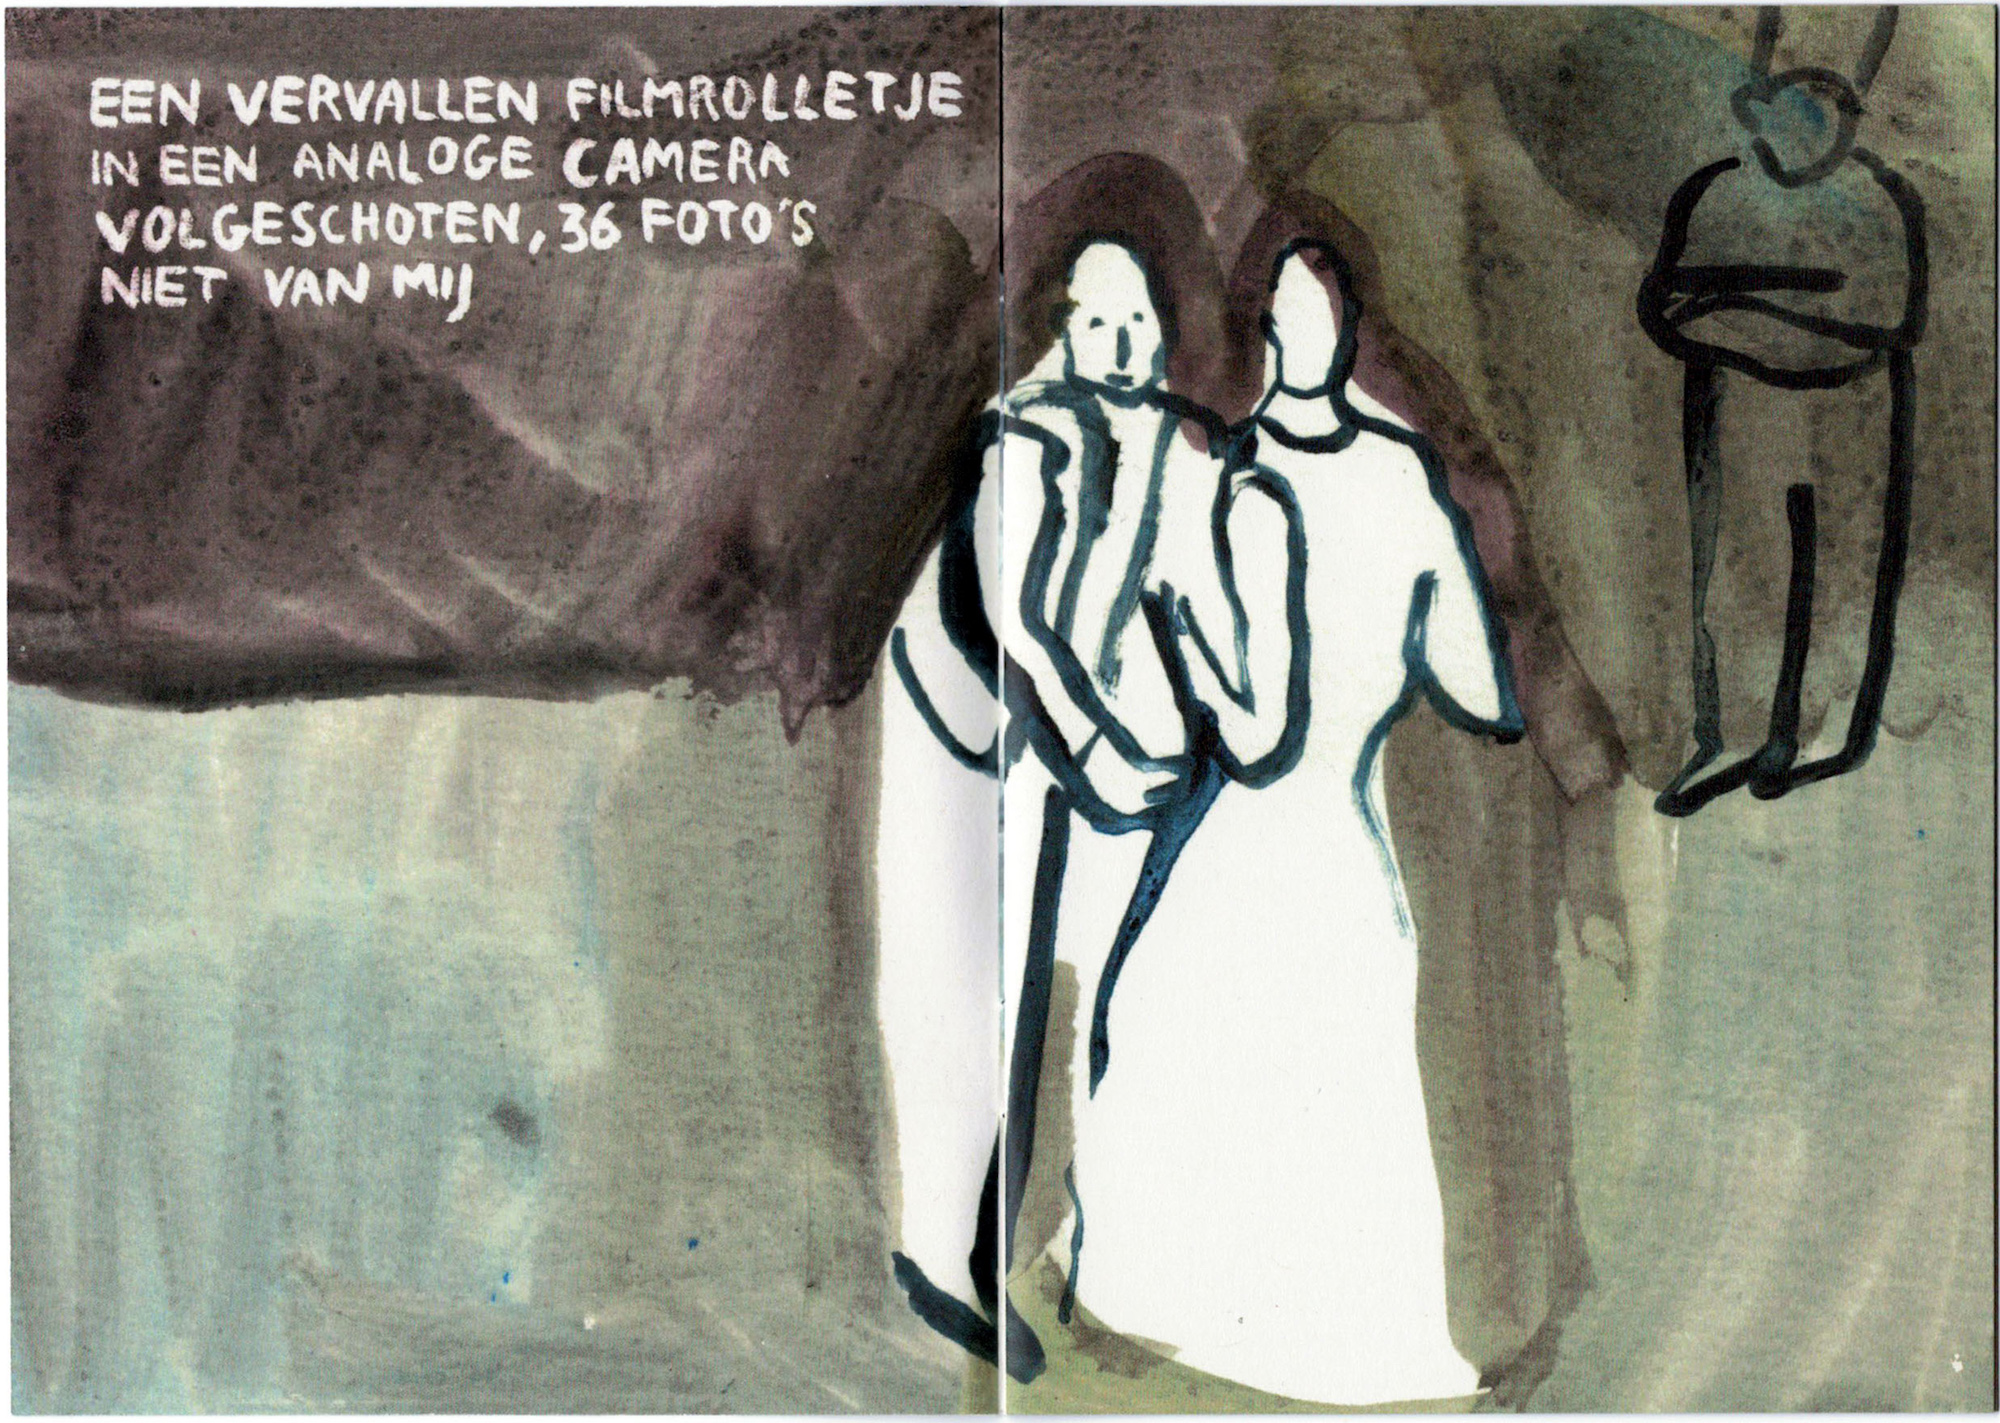 EEN VERVALLEN FILMROLLETJE
IN EEN ANALOGE CAMERA
VOLGESCHOTEN, 36 FOTO'S
NIET VAN MIJ